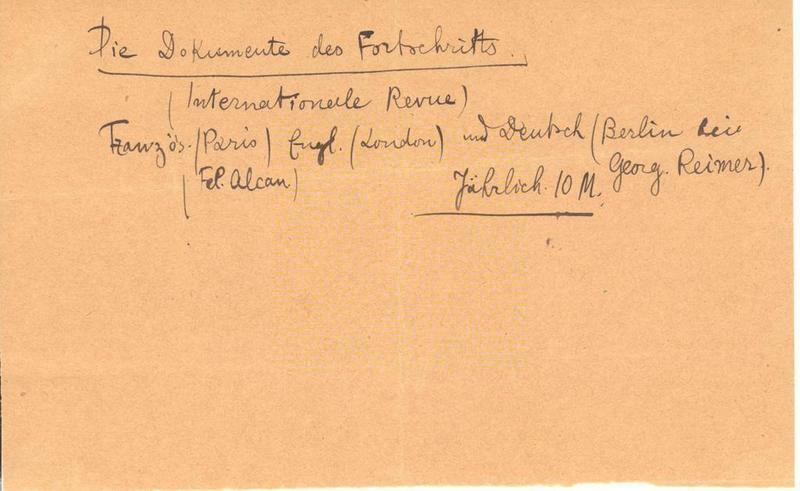 Die Dokumente des Fortschritts.
(Internationale Revue)
Französ. (Paris) Engl. (London) und Deutsch (Berlin bei
(Fel. Alcan) Georg. Reimer).
Jährlich. 10 M.